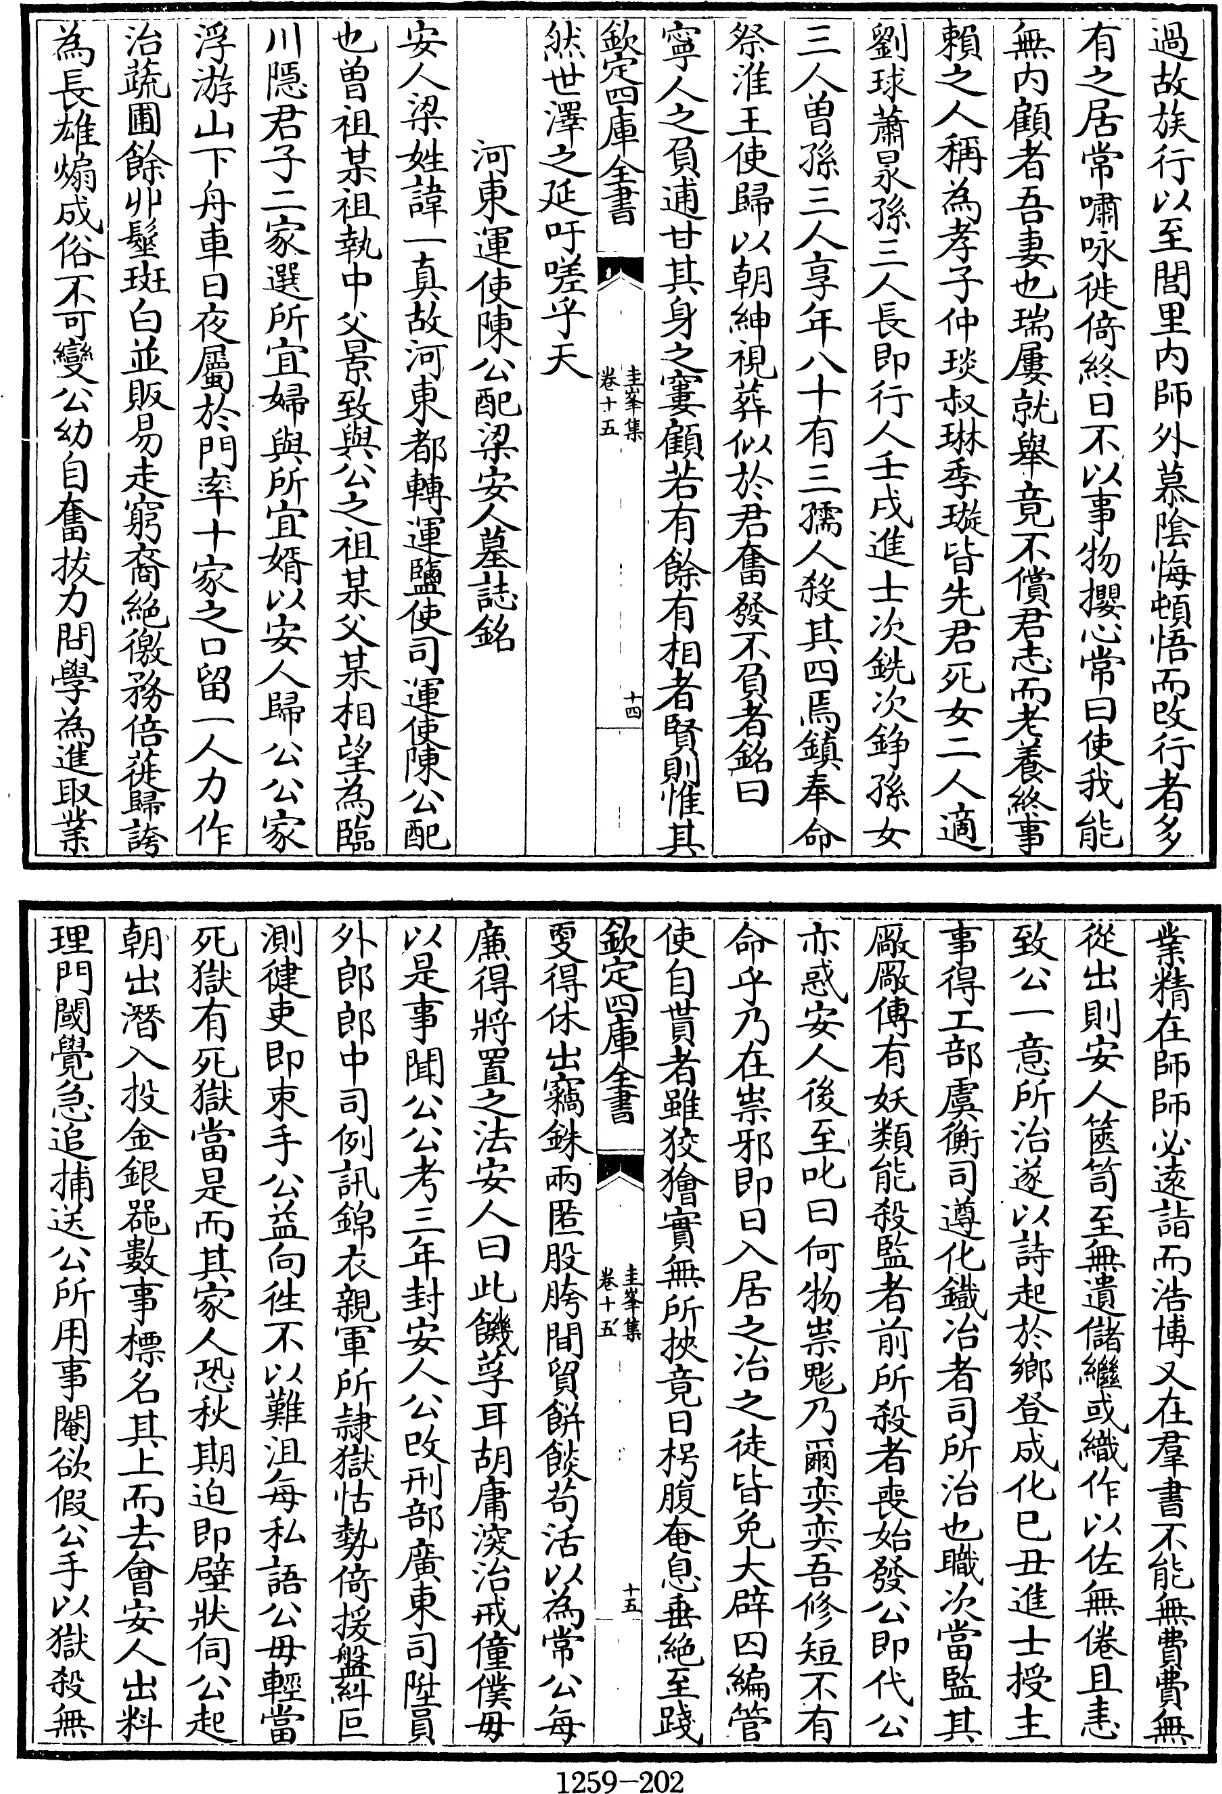 過故族行以至閭里内師外慕隂悔頓悟而改行者多
有之居常嘯咏徙倚終日不以事物攖心常曰使我能
無内顧者吾妻也瑞屢就舉竟不償君志而老養終事
賴之人稱為孝子仲琰叔琳季璇皆先君死女二人適
劉球蕭㫤孫三人長即行人壬戌進士次銑次錚孫女
三人曾孫三人享年八十有三孺人殁其四焉鎮奉命
祭淮王使歸以朝紳視葬似於君奮發不負者銘曰
寧人之負逋甘其身之窶顧若有餘有相者賢則惟其
欽定四庫全書
圭峯集
卷十五
十四
然世澤之延吁嗟乎天
河東運使陳公配梁安人墓誌銘
安人梁姓諱一真故河東都轉運鹽使司運使陳公配
也曾祖某祖執中父景致與公之祖某父某相望為臨
川隱君子二家選所宜婦與所宜婿以安人歸公公家
浮游山下舟車日夜屬於門率十家之口留一人力作
治蔬圃餘丱髽斑白並販易走窮裔絶徼務倍蓰歸誇
為長雄煽成俗不可變公幼自奮拔力問學為進取業
業精在師師必遠詣而浩博又在羣書不能無費費無
從出則安人篋笥至無遺儲繼或織作以佐無倦且恚
致公一意所治遂以詩起於鄉登成化己丑進士授主
事得工部虞衡司遵化鐵冶者司所治也職次當監其
厰厰傳有妖類能殺監者前所殺者喪始發公即代公
亦惑安人後至叱曰何物祟鬽乃爾奕奕吾修短不有
命乎乃在祟邪即日入居之冶之徒皆免大辟囚編管
使自貰者雖狡獪實無所挾竟日枵腹奄息垂絶至踐
欽定四庫全書
圭峯集
卷十五
十五
更得休出竊銖兩匿股胯間貿餅餤苟活以為常公每
廉得將置之法安人曰此饑莩耳胡庸深治戒僮僕毋
以是事聞公公考三年封安人公改刑部廣東司陞員
外郎郎中司例訊錦衣親軍所隷獄怙勢倚援盤糾叵
測徤吏即束手公益向徃不以難沮每私語公毋輕當
死獄有死獄當是而其家人恐秋期迫即壁狀伺公起
朝出潛入投金銀器數事標名其上而去會安人出料
理門閾覺急追捕送公所用事閹欲假公手以獄殺無
1259-202